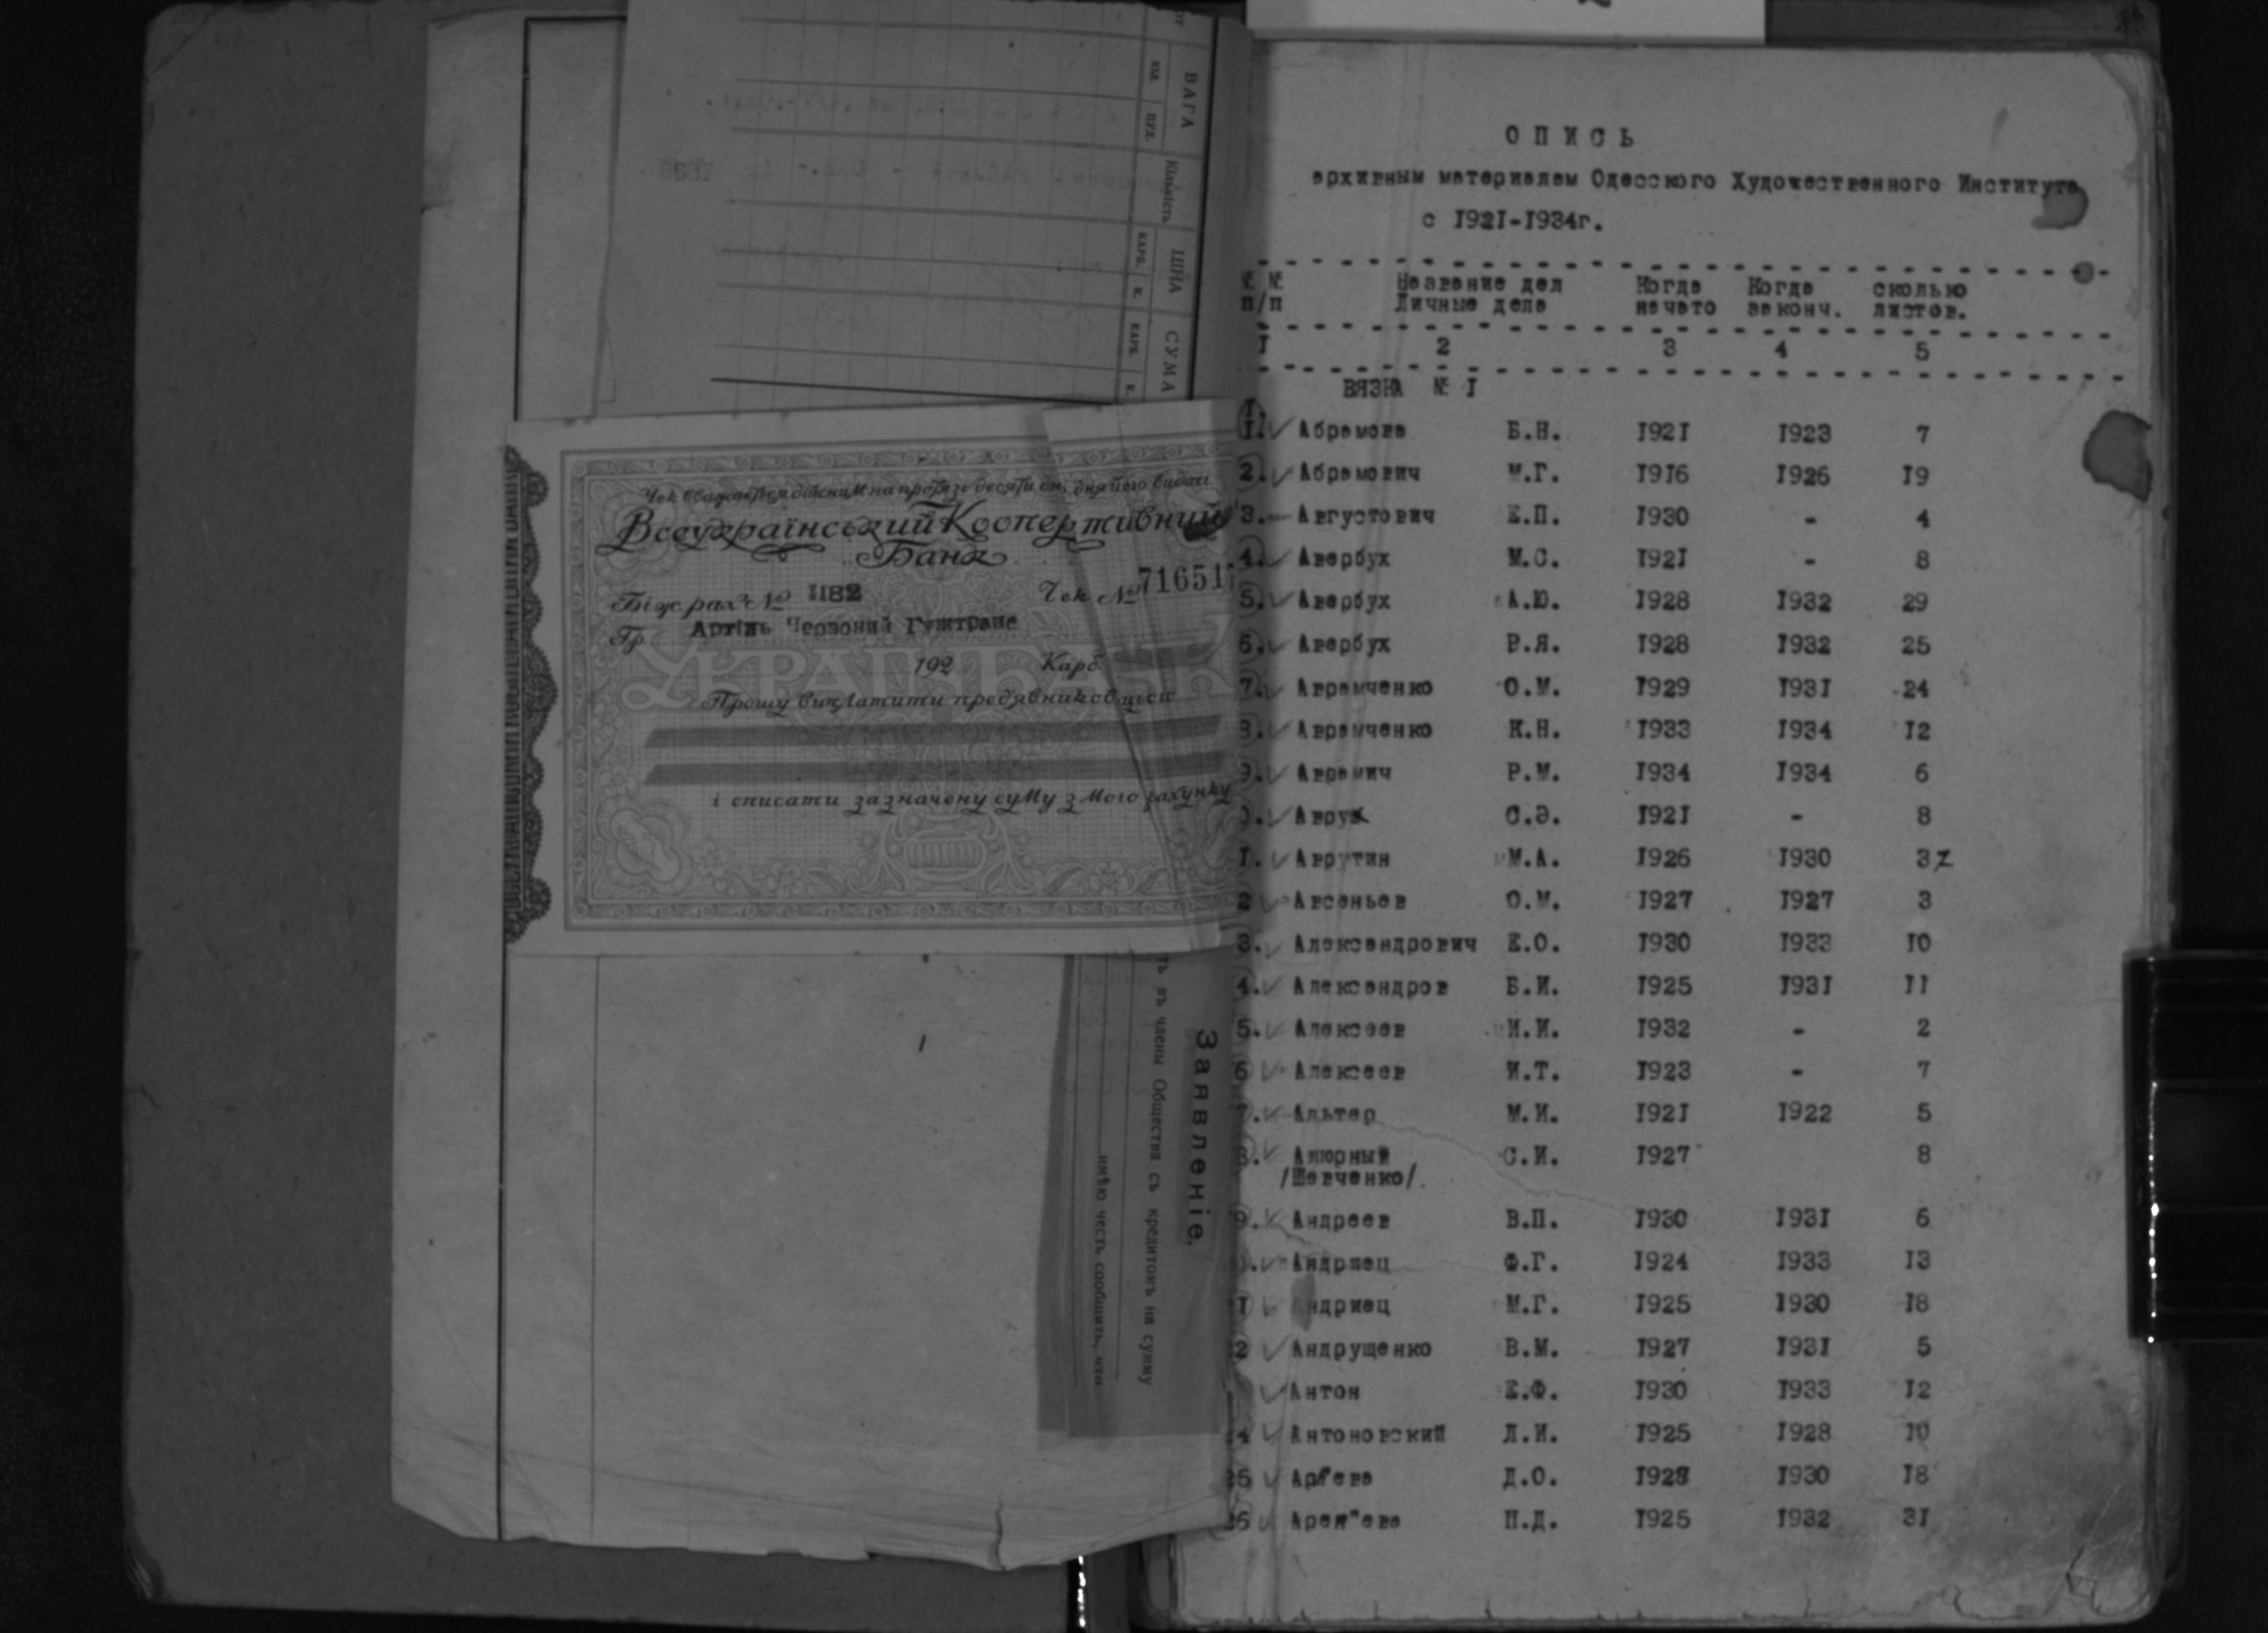 ВАГА
КІД.
ПУД.
Кількість
ЦІНА
КАРБ.
К.
СУМА
КАРБ.
К.
Чек вважається дійсним на протязі десяти дн. дня його видачі
Всеукраїнський Кооперативний
Банк
Біж. рах. № 1182 Чек № 71651
Гр. Артіль Червоний Гужтранс
192 Карб.
Прошу виплатити предявникові цього
і списати зазначену суму з мого рахунку
УКРАЇНБАНК
Заявленіе.
ть въ члены Общества съ кредитомъ на сумму
имѣю честь сообщить, что
ОПИСЬ
архивным материалам Одесского Художественного Института
с 1921-1934г.
№ № Название дел Когда Когда сколько
п/п Личные дела начато законч. листов.
1 2 3 4 5
ВЯЗКА № 1
1. Абрамова Б.Н. 1921 1923 7
2. Абрамович М.Г. 1916 1926 19
3. Августович Е.П. 1930 - 4
4. Авербух М.С. 1921 - 8
5. Авербух А.Ю. 1928 1932 29
6. Авербух Р.Я. 1928 1932 25
7. Авраменко О.М. 1929 1931 24
8. Авраменко К.Н. 1933 1934 12
9. Аврамич Р.М. 1934 1934 6
0. С.Э. 1921 - 8
1. Аврутин М.А. 1926 1930 37
2 Авсеньев О.М. 1927 1927 3
3. Александрович Е.О. 1930 1933 10
4. Александров Б.И. 1925 1931 11
5. Алексеев И.И. 1932 - 2
6 Алексеев И.Т. 1923 - 7
7. Альтер М.И. 1921 1922 5
8. Аллюрный С.И. 1927 8
/Шевченко/.
9. Андреев В.П. 1930 1931 6
0. Андриец Ф.Г. 1924 1933 13
1 Андриец М.Г. 1925 1930 18
22 Андрущенко В.М. 1927 1931 5
Антон Е.Ф. 1930 1933 12
24 Антоновский Л.И. 1925 1928 10
25 Д.О. 1928 1930 18
26 Арен"ева Н.Д. 1925 1932 31